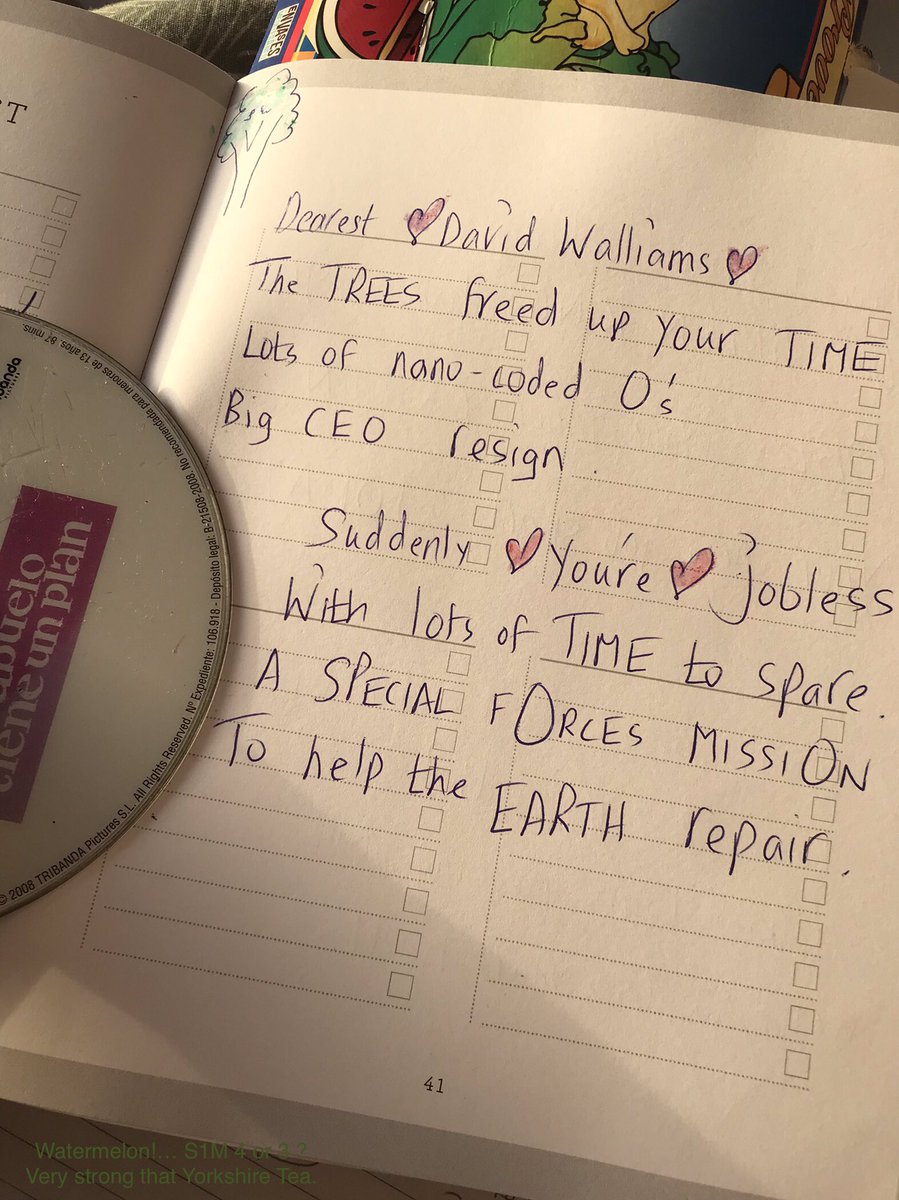 ENVASES
Dearest David Walliams
The TREES freed up your TIME
Lots of nano-coded O's
Big CEO resign.
Suddenly You're jobless
With lots of TIME to spare.
A SPECIAL FORCES MISSION
To help the EARTH repair.
abuelo
tiene un plan
© 2008 TRIBANDA Pictures S.L. All Rights Reserved. Nº Expediente: 106.918 - Depósito legal: B-21508-2008. No recomendada para menores de 13 años. 87 mins.
41
Watermelon!... S1M 4 or 3 ?
Very strong that Yorkshire Tea.